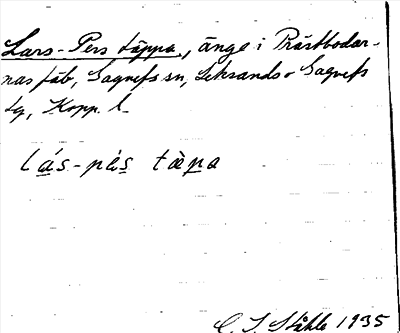 Lars-Pers täppa, änge i Prästbodar-
nas fäb, Gagnefs sn, Leksands o Gagnefs
tg, Kopp. l.
lás-pès tàpa
C. I. Ståhle 1935